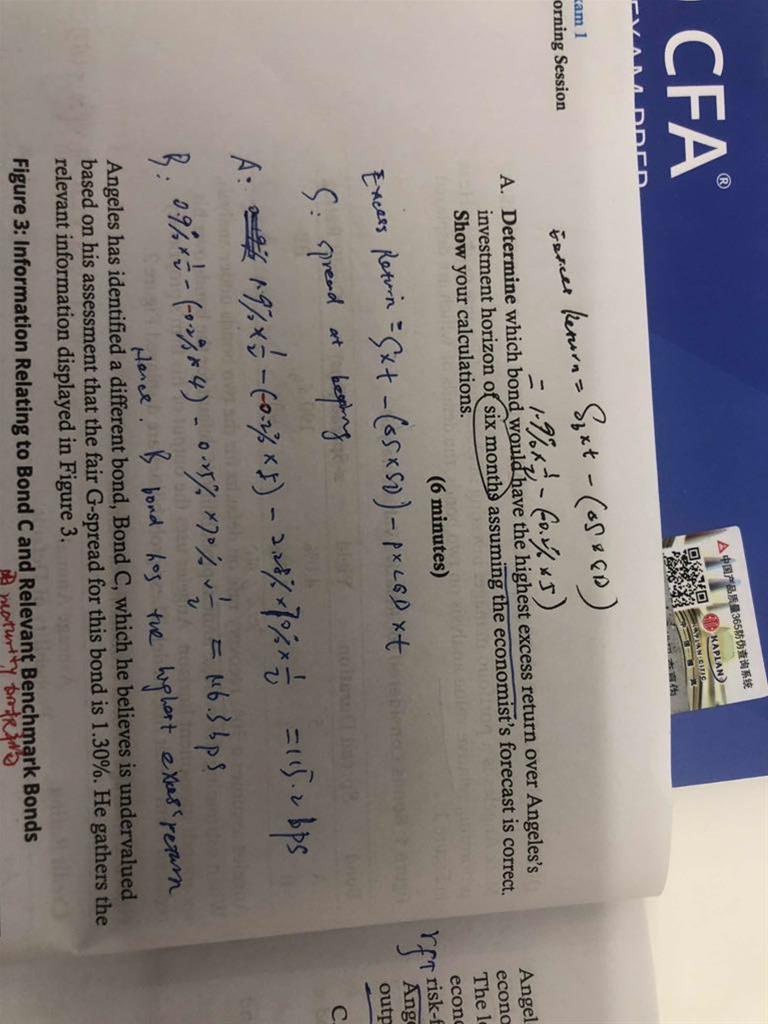 CFA®
EXAM PREP
中国产品质量365防伪查询系统
KAPLAN
xam 1
orning Session
Excess Return = S₀ x t - (ΔS x SD)
= 1.9% x ½ - (-0.2% x 5)
A. Determine which bond would have the highest excess return over Angeles's
investment horizon of six months assuming the economist's forecast is correct.
Show your calculations.
(6 minutes)
Excess Return = S x t - (ΔS x SD) - P x LGD x t
S: spread at
A: 1.9% x ½ - (-0.2% x 5) - 2.28% x 70% x ½ = 115.2 bps
B: 0.9% x ½ - (-0.2% x 4) - 0.25% x 70% x ½ = 116.3 bps
Hence, B bond has the highest excess return
Angeles has identified a different bond, Bond C, which he believes is undervalued
based on his assessment that the fair G-spread for this bond is 1.30%. He gathers the
relevant information displayed in Figure 3.
Figure 3: Information Relating to Bond C and Relevant Benchmark Bonds
maturity
Angel
econo
The l
econ
rf risk-f
Ange
outp
C.